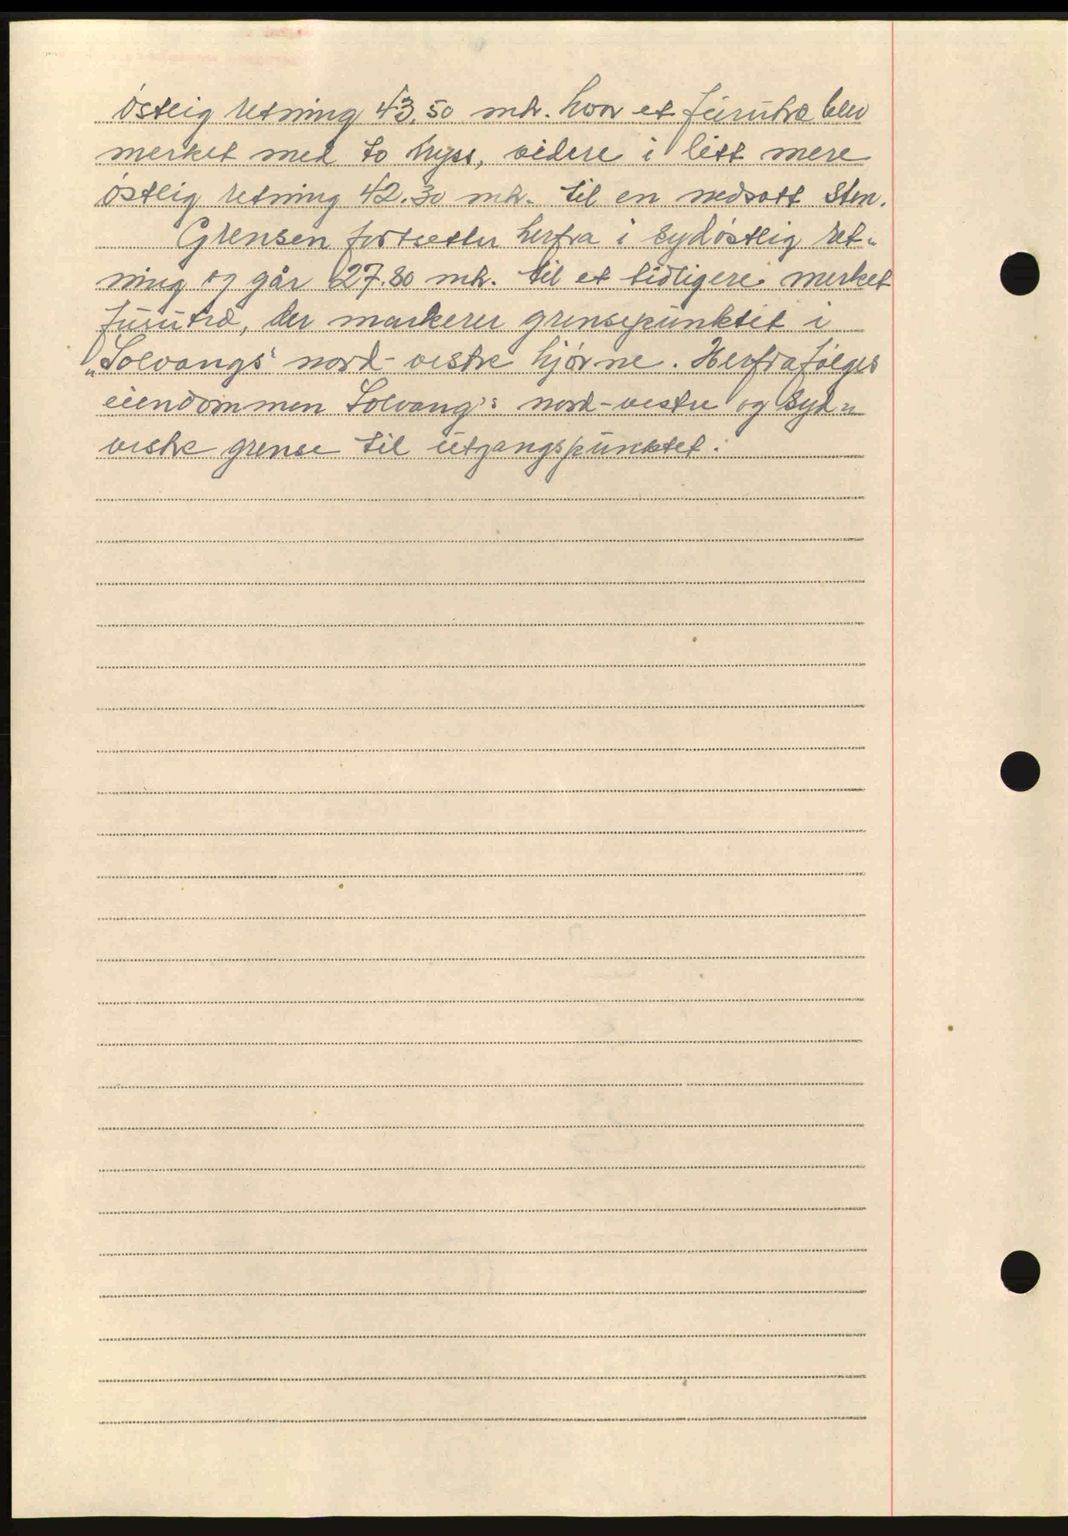 østlig retning 43,50 mtr. hvor et furutre blev
merket med to kryss, videre i litt mere
østlig retning 42.30 mtr. til en nedsatt sten.
Grensen fortsetter herfra i sydøstlig ret-
ning og går 27.80 mtr. til et tidligere merket
furutre, der markerer grensepunktet i
„Solvangs" nord-vestre hjørne. Herfra følges
eiendommen Solvang's nord-vestre og syd-
vestre grense til utgangspunktet.